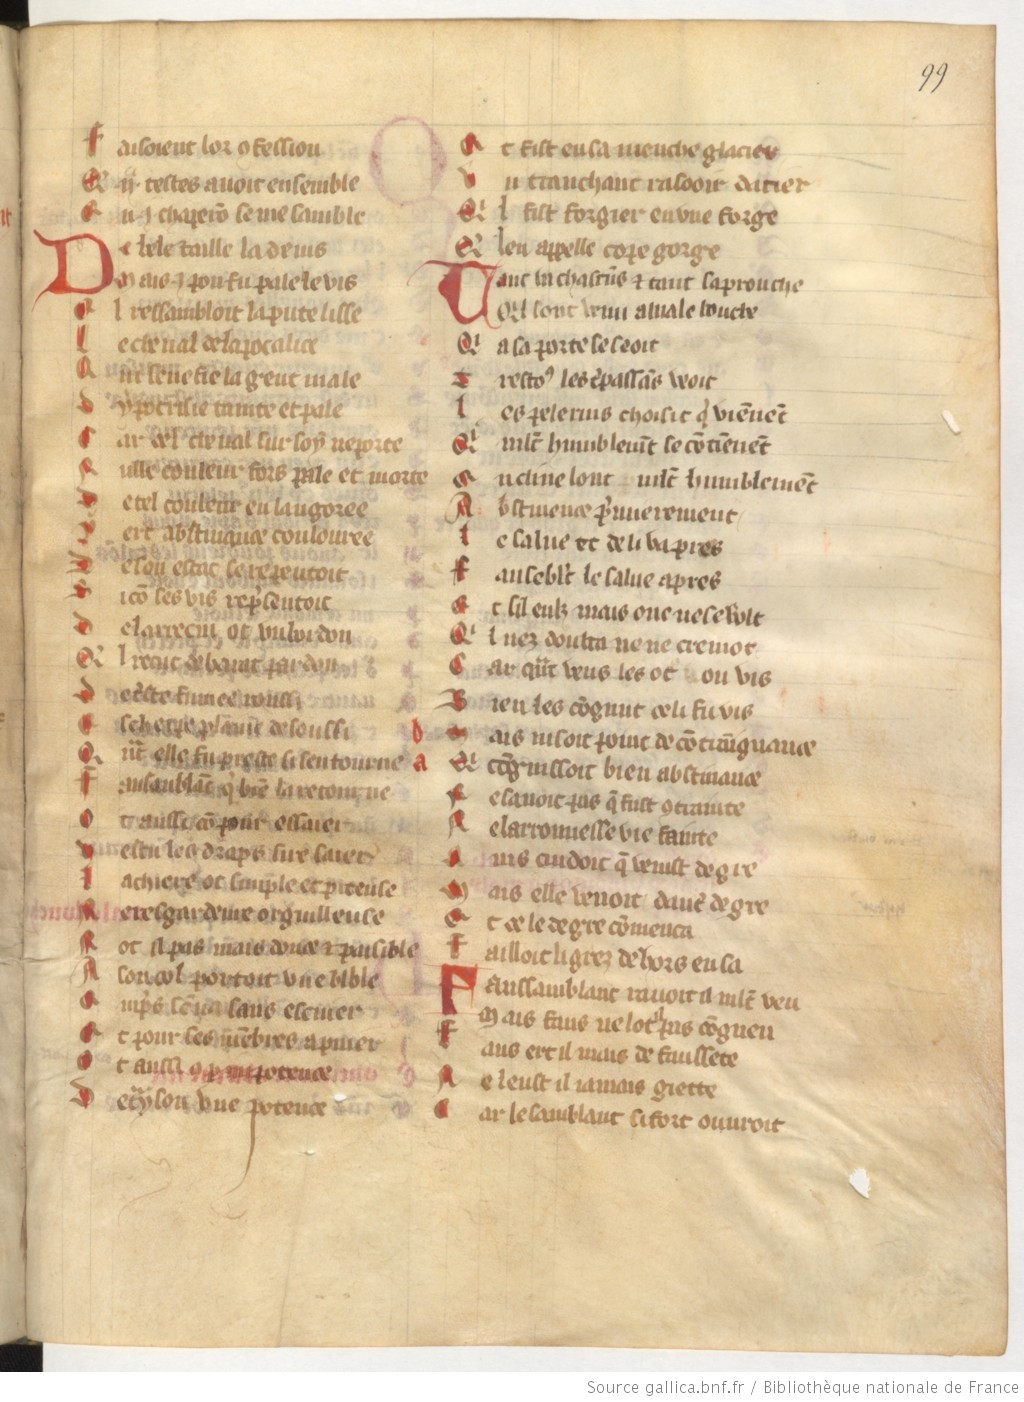 99
F aisoient lor ofession
Q ij testes auoit ensemble
E n j chapero se me samble
D e lele taille la deuis
M ais j pou fu pale le vis
E l ressambloit la pute lisse
L e cheual de lapocalice
Q ui senefie la gent male
D ypocrisie tainte et pale
C ar cel cheual sur soy ne porte
N ulle couleur fors pale et morte
D e tel couleur en langoree
I ert abstinance coulouree
D e son estat se repentoit
S ico ses vis repsentoit
D e larrecin ot vn bordon
Q l recut de barat par don
D e triste fumee roussi
E scherpe plainne de soussi
Q nt elle fu preste si sen tourne a
F aus samblat q bie la retourne b
O t aussi co pour essaier
V estu les draps frere saier
L a chiere ot simple et piteuse
N e resgardeure orguilleuse
N ot il pas mais douce et paisible
A son col portoit vne bible
E mps sen va sans escuier
E t pour ses menbres apuier
O t aussi par inpotence
D e trayson vne potence
E t fist en sa menche glacier
V n trauchant rasooir dacier
Q l fist forgier en vne forge
Q len appelle cope gorge
T ant va chascuns et tant saprouche
Q l sont venu a male bouche
Q a la porte se seoit
T restous les trespassans veoit
L es pelerins choisit q viennet
Q mlt humblement se cotienent
E ncline lont mlt humblement
A bstinence premierement
L e salue et de li va pres
F au seblt le salue apres
E t sil eulz mais onc ne se volt
Q l nez doubta ne ne cremot
C ar qnt veus les ot ou vis
B ien les cognut ce li fu vis
M ais ni soit point de contraingnance
Q cognissoit bien abstinance
N e sauoit pas q fust ctrainte
N e larronnesse vie fainte
A ins cuidoit q venist de gre
M ais elle venoit dautre degre
E t ce le degre comenca
F ailloit li grez de hors en sa
F aussamblant rauoit il mlt veu
M ais faus ne lot pas cogneu
F aus ert il mais de faussete
N e leust il iamais giette
C ar le samblant si fort ouuroit
Source gallica.bnf.fr / Bibliothèque nationale de France